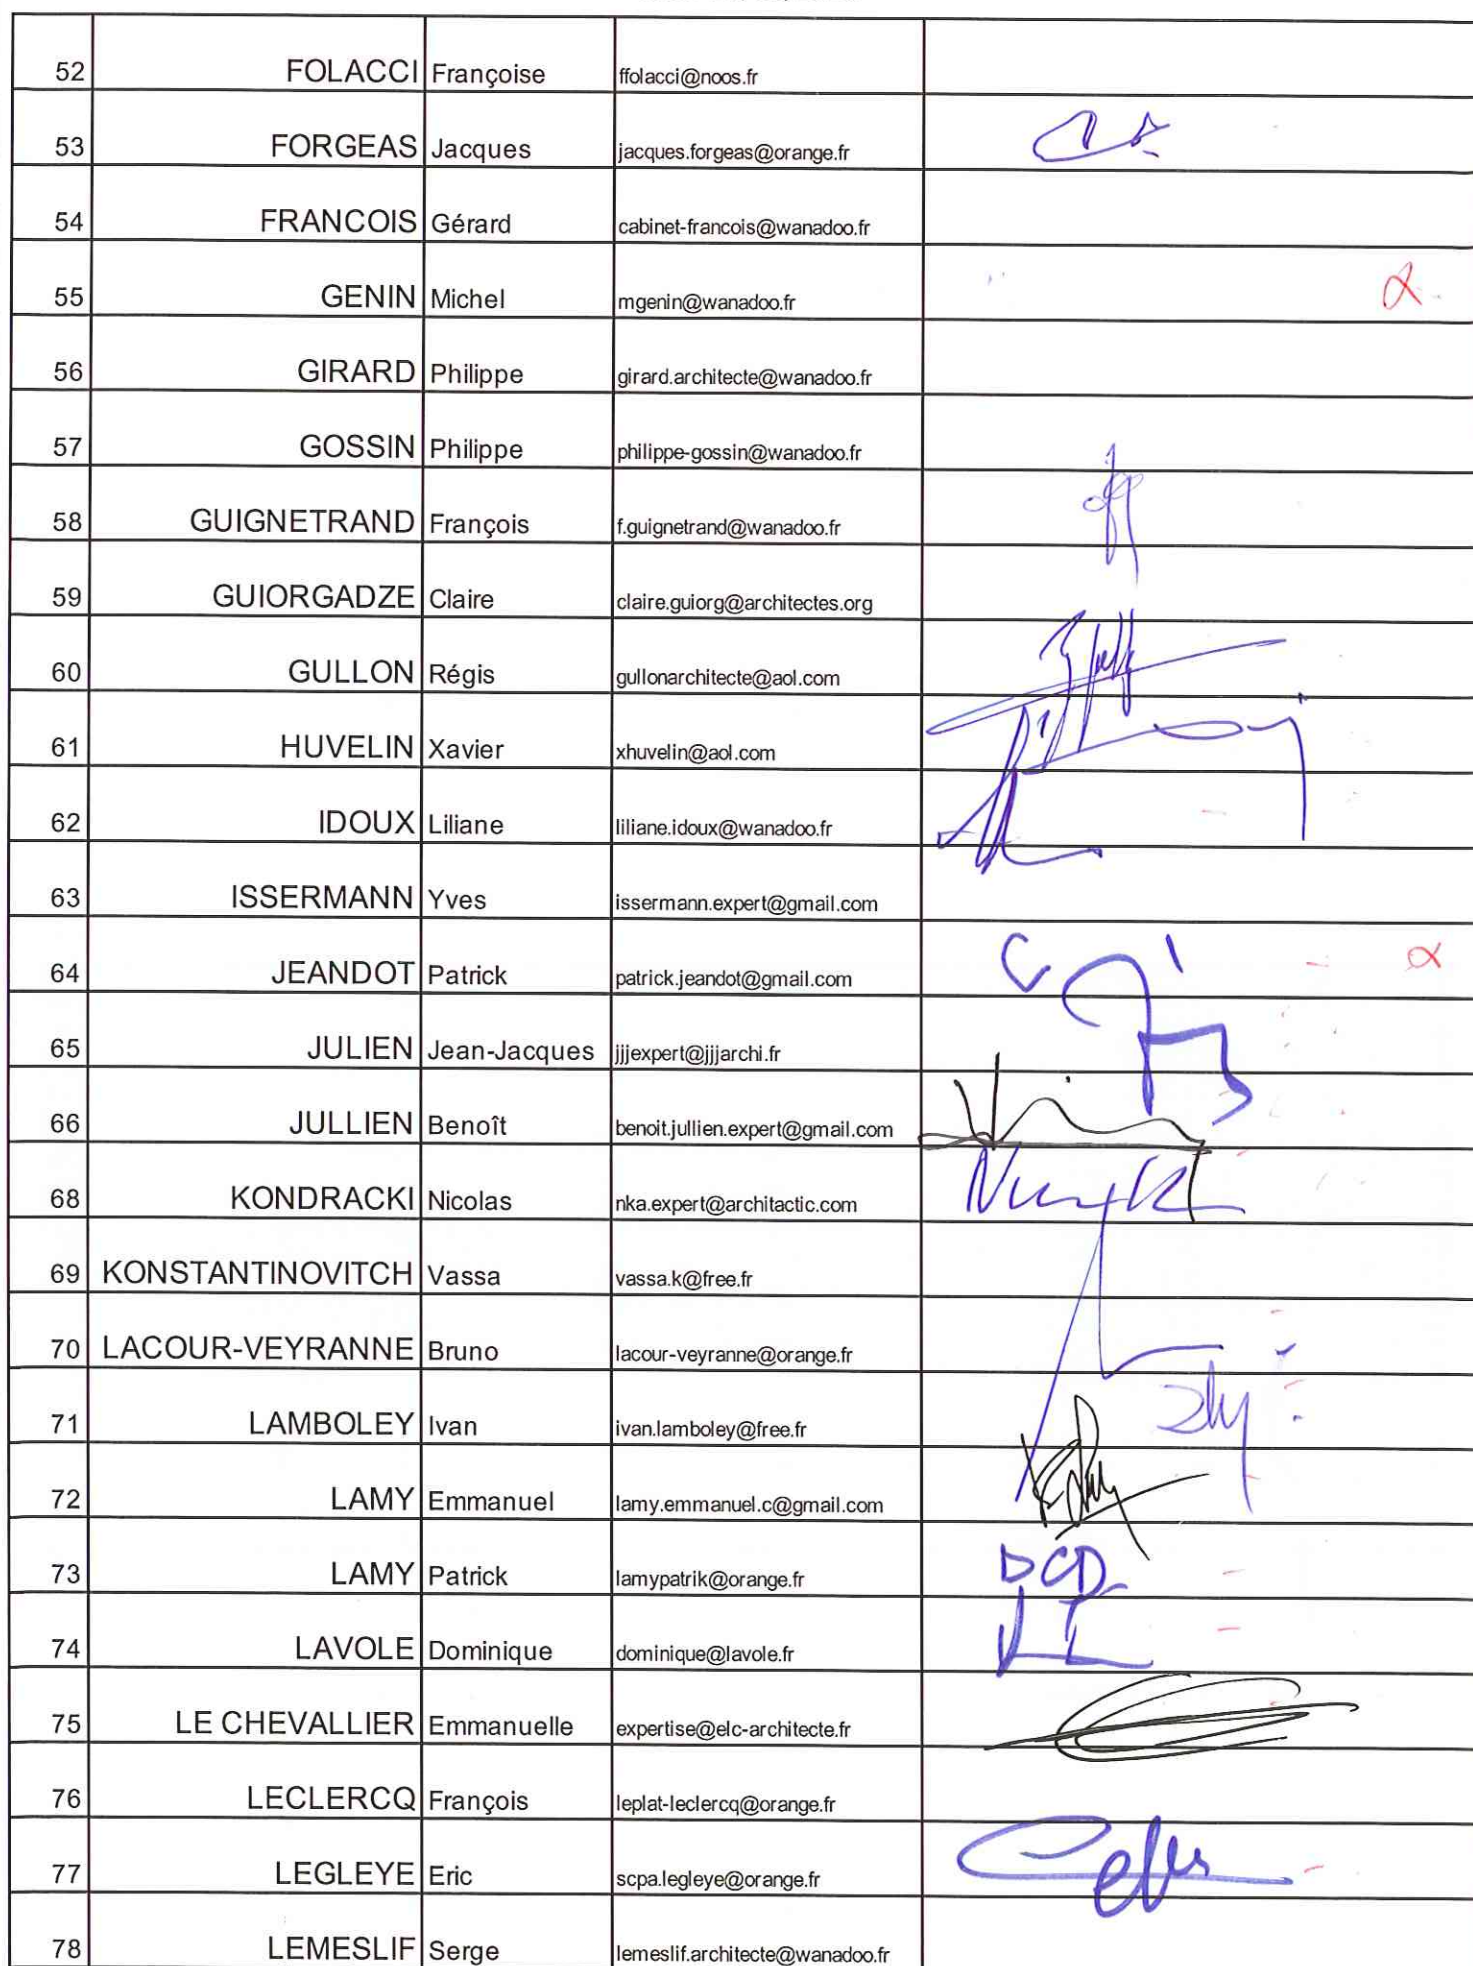 52 FOLACCI Françoise ffolacci@noos.fr
53 FORGEAS Jacques jacques.forgeas@orange.fr
54 FRANCOIS Gérard cabinet-francois@wanadoo.fr
55 GENIN Michel mgenin@wanadoo.fr
56 GIRARD Philippe girard.architecte@wanadoo.fr
57 GOSSIN Philippe philippe-gossin@wanadoo.fr
58 GUIGNETRAND François f.guignetrand@wanadoo.fr
59 GUIORGADZE Claire claire.guiorg@architectes.org
60 GULLON Régis gullonarchitecte@aol.com
61 HUVELIN Xavier xhuvelin@aol.com
62 IDOUX Liliane liliane.idoux@wanadoo.fr
63 ISSERMANN Yves issermann.expert@gmail.com
64 JEANDOT Patrick patrick.jeandot@gmail.com
65 JULIEN Jean-Jacques jjjexpert@jjjarchi.fr
66 JULLIEN Benoît benoit.jullien.expert@gmail.com
68 KONDRACKI Nicolas nka.expert@architactic.com
69 KONSTANTINOVITCH Vassa vassa.k@free.fr
70 LACOUR-VEYRANNE Bruno lacour-veyranne@orange.fr
71 LAMBOLEY Ivan ivan.lamboley@free.fr
72 LAMY Emmanuel lamy.emmanuel.c@gmail.com
73 LAMY Patrick lamypatrik@orange.fr DCD
74 LAVOLE Dominique dominique@lavole.fr
75 LE CHEVALLIER Emmanuelle expertise@elc-architecte.fr
76 LECLERCQ François leplat-leclercq@orange.fr
77 LEGLEYE Eric scpa.legleye@orange.fr
78 LEMESLIF Serge lemeslif.architecte@wanadoo.fr